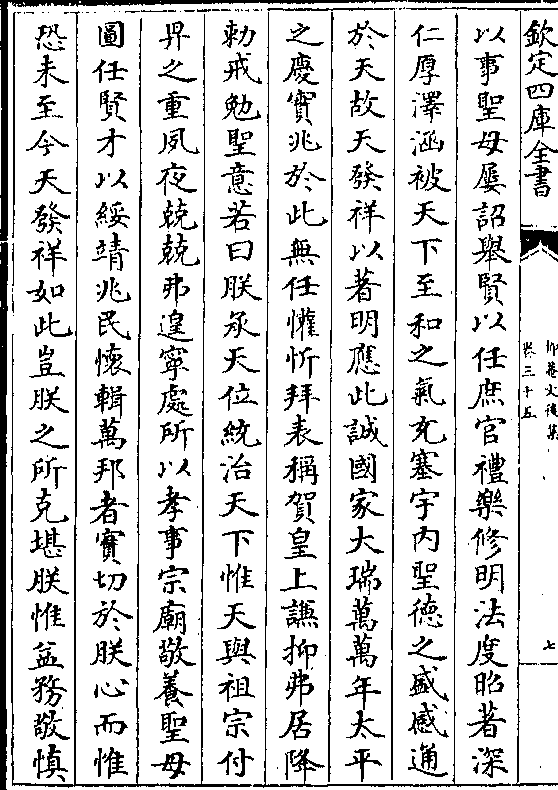 欽定四庫全書
抑菴文後集
卷三十五
七
以事聖母屢詔舉賢以任庶官禮樂修明法度昭著深
仁厚澤涵被天下至和之氣充塞宇内聖德之盛感通
於天故天發祥以著明應此誠國家大瑞萬萬年太平
之慶實兆於此無任懽忻拜表稱賀皇上謙抑弗居降
勅戒勉聖意若曰朕承天位統治天下惟天與祖宗付
畀之重夙夜兢兢弗遑寧處所以孝事宗廟敬養聖母
圖任賢才以綏靖兆民懷輯萬邦者實切於朕心而惟
恐未至今天發祥如此豈朕之所克堪朕惟益務敬慎